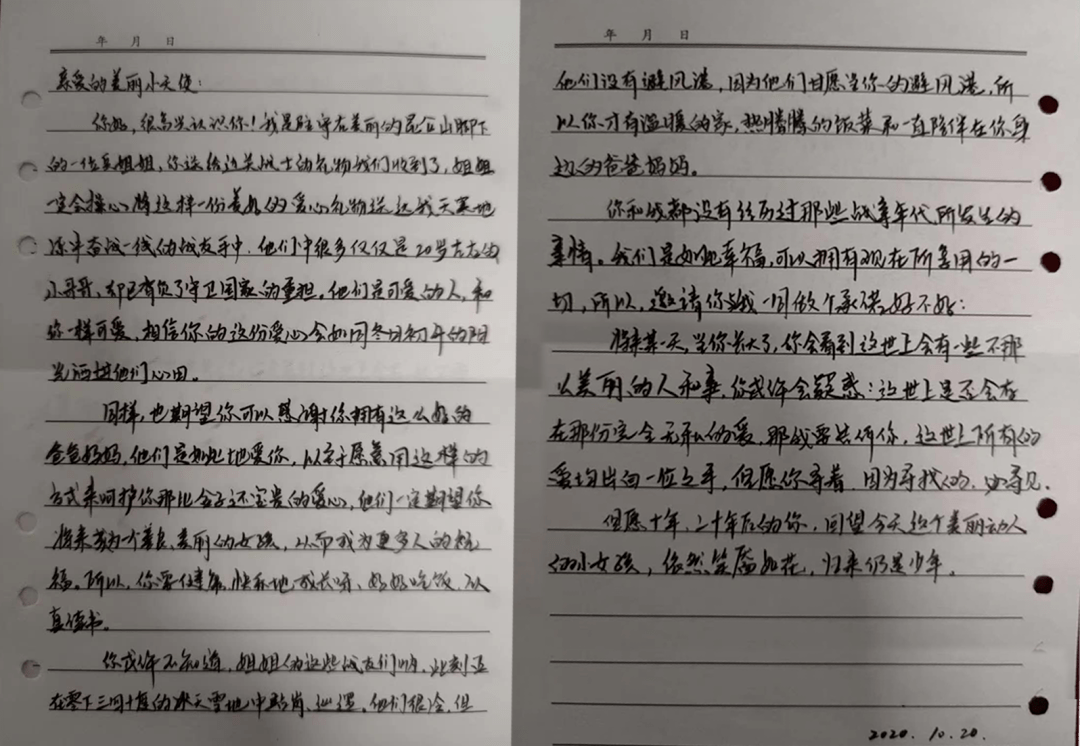 年 月 日
亲爱的美丽小天使：
你好，很高兴认识你！我是驻守在美丽的昆仑山脚下
的一位兵姐姐，你送给边关战士的礼物我们收到了，姐姐
一定会操心将这样一份美好的爱心礼物送达我天寒地
冻中奋战一线的战友手中，他们中很多仅仅是20岁左右的
小哥哥，却已肩负了守卫国家的重担。他们是可爱的人，和
你一样可爱，相信你的这份爱心会如同冬日初升的阳
光洒进他们心田。
同样，也期望你可以感谢你拥有这么好的
爸爸妈妈，他们是如此地爱你，以至于愿意用这样的
方式来呵护你那比金子还宝贵的爱心，他们一定期望你
将来成为一个善良、美丽的女孩，从而成为更多人的祝
福。所以，你要健康、快乐地成长呀、好好吃饭、认
真读书。
你或许不知道，姐姐的这些战友们呐，此刻正
在零下三四十度的冰天雪地中站岗、巡逻。他们很冷，但
年 月 日
他们没有避风港，因为他们甘愿当你的避风港，所
以你才有温暖的家，热腾腾的饭菜和一直陪伴在你身
边的爸爸妈妈。
你和我都没有经历过那些战争年代所发生的
事情。我们是如此幸福，可以拥有现在所享用的一
切，所以，邀请你与我一同做个承诺好不好：
将来某一天，当你长大了，你会看到这世上会有一些不那
么美丽的人和事，你或许会疑惑：这世上是否会存
在那份完全无私的爱，那我要告诉你，这世上所有的
爱均出自一位之手，但愿你寻着，因为寻找的，必寻见。
但愿十年、二十年后的你，回望今天这个美丽动人
的小女孩，依然笑靥如花，归来仍是少年。
2020.10.20.